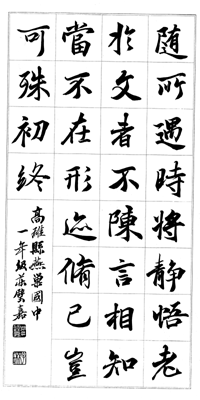 随所遇時將靜悟老
於文者不陳言相知
當不在形迹脩已豈
可殊初終
高雄縣燕巢國中
一年級莊嘉